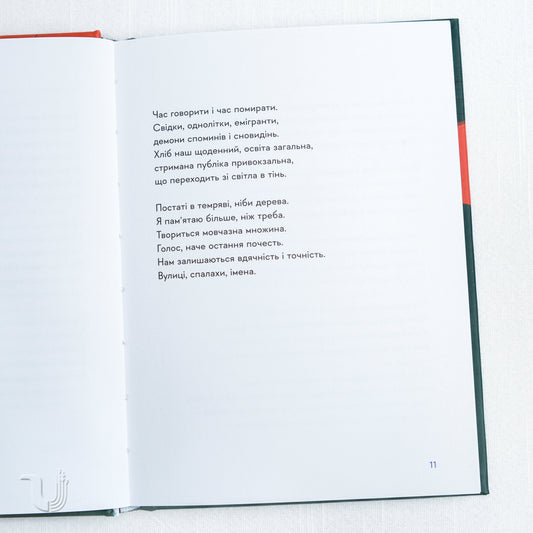 Час говорити і час помирати.
Свідки, однолітки, емігранти,
демони споминів і сновидінь.
Хліб наш щоденний, освіта загальна,
стримана публіка привокзальна,
що переходить зі світла в тінь.
Постаті в темряві, ніби дерева.
Я пам'ятаю більше, ніж треба.
Твориться мовчазна множина.
Голос, наче остання почесть.
Нам залишаються вдячність і точність.
Вулиці, спалахи, імена.
11